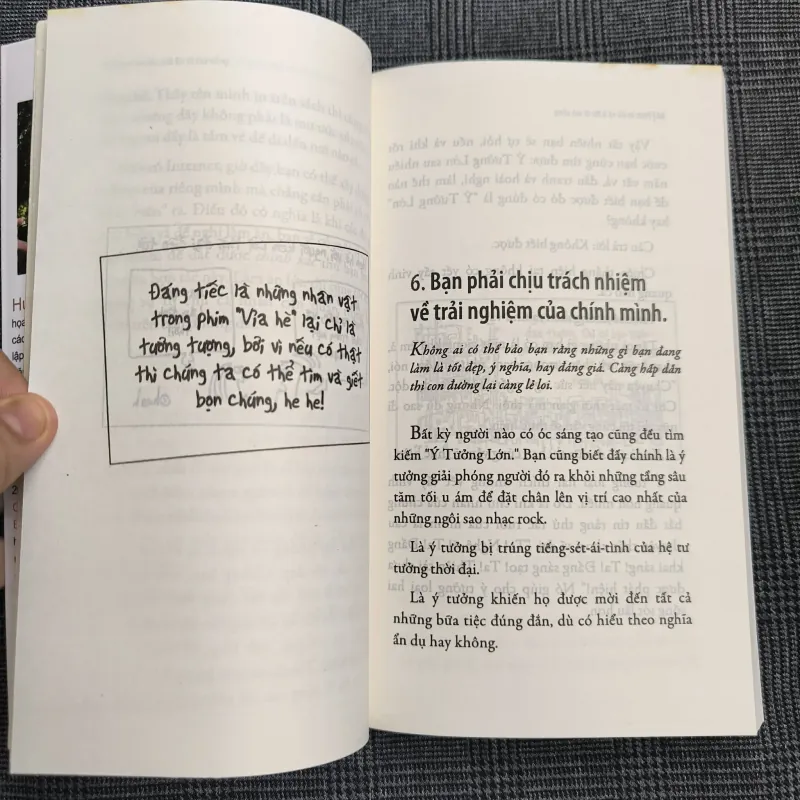 Đáng tiếc là những nhân vật
trong phim "Vỉa hè" lại chỉ là
tưởng tượng, bởi vì nếu có thật
thì chúng ta có thể tìm và giết
bọn chúng, he he!
6. Bạn phải chịu trách nhiệm
về trải nghiệm của chính mình.
Không ai có thể bảo bạn rằng những gì bạn đang
làm là tốt đẹp, ý nghĩa, hay đáng giá. Càng hấp dẫn
thì con đường lại càng lẻ loi.
Bất kỳ người nào có óc sáng tạo cũng đều tìm
kiếm "Ý Tưởng Lớn." Bạn cũng biết đấy chính là ý
tưởng giải phóng người đó ra khỏi những tầng sâu
tăm tối u ám để đặt chân lên vị trí cao nhất của
những ngôi sao nhạc rock.
Là ý tưởng bị trúng tiếng-sét-ái-tình của hệ tư
tưởng thời đại.
Là ý tưởng khiến họ được mời đến tất cả
những bữa tiệc đúng đắn, dù có hiểu theo nghĩa
ẩn dụ hay không.